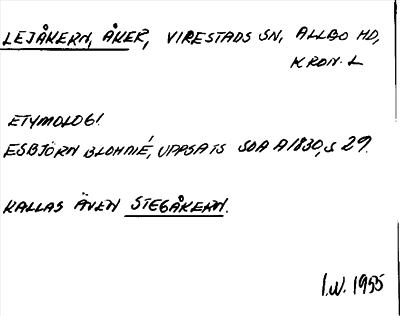 LEJÅKERN, ÅKER, VIRESTADS SN, ALLBO HD,
KRON. L
ETYMOLOGI
ESBJÖRN BLOHMÉ, UPPSATS SOA A1830, S 29.
KALLAS ÄVEN STEGÅKERN.
I.W. 1955